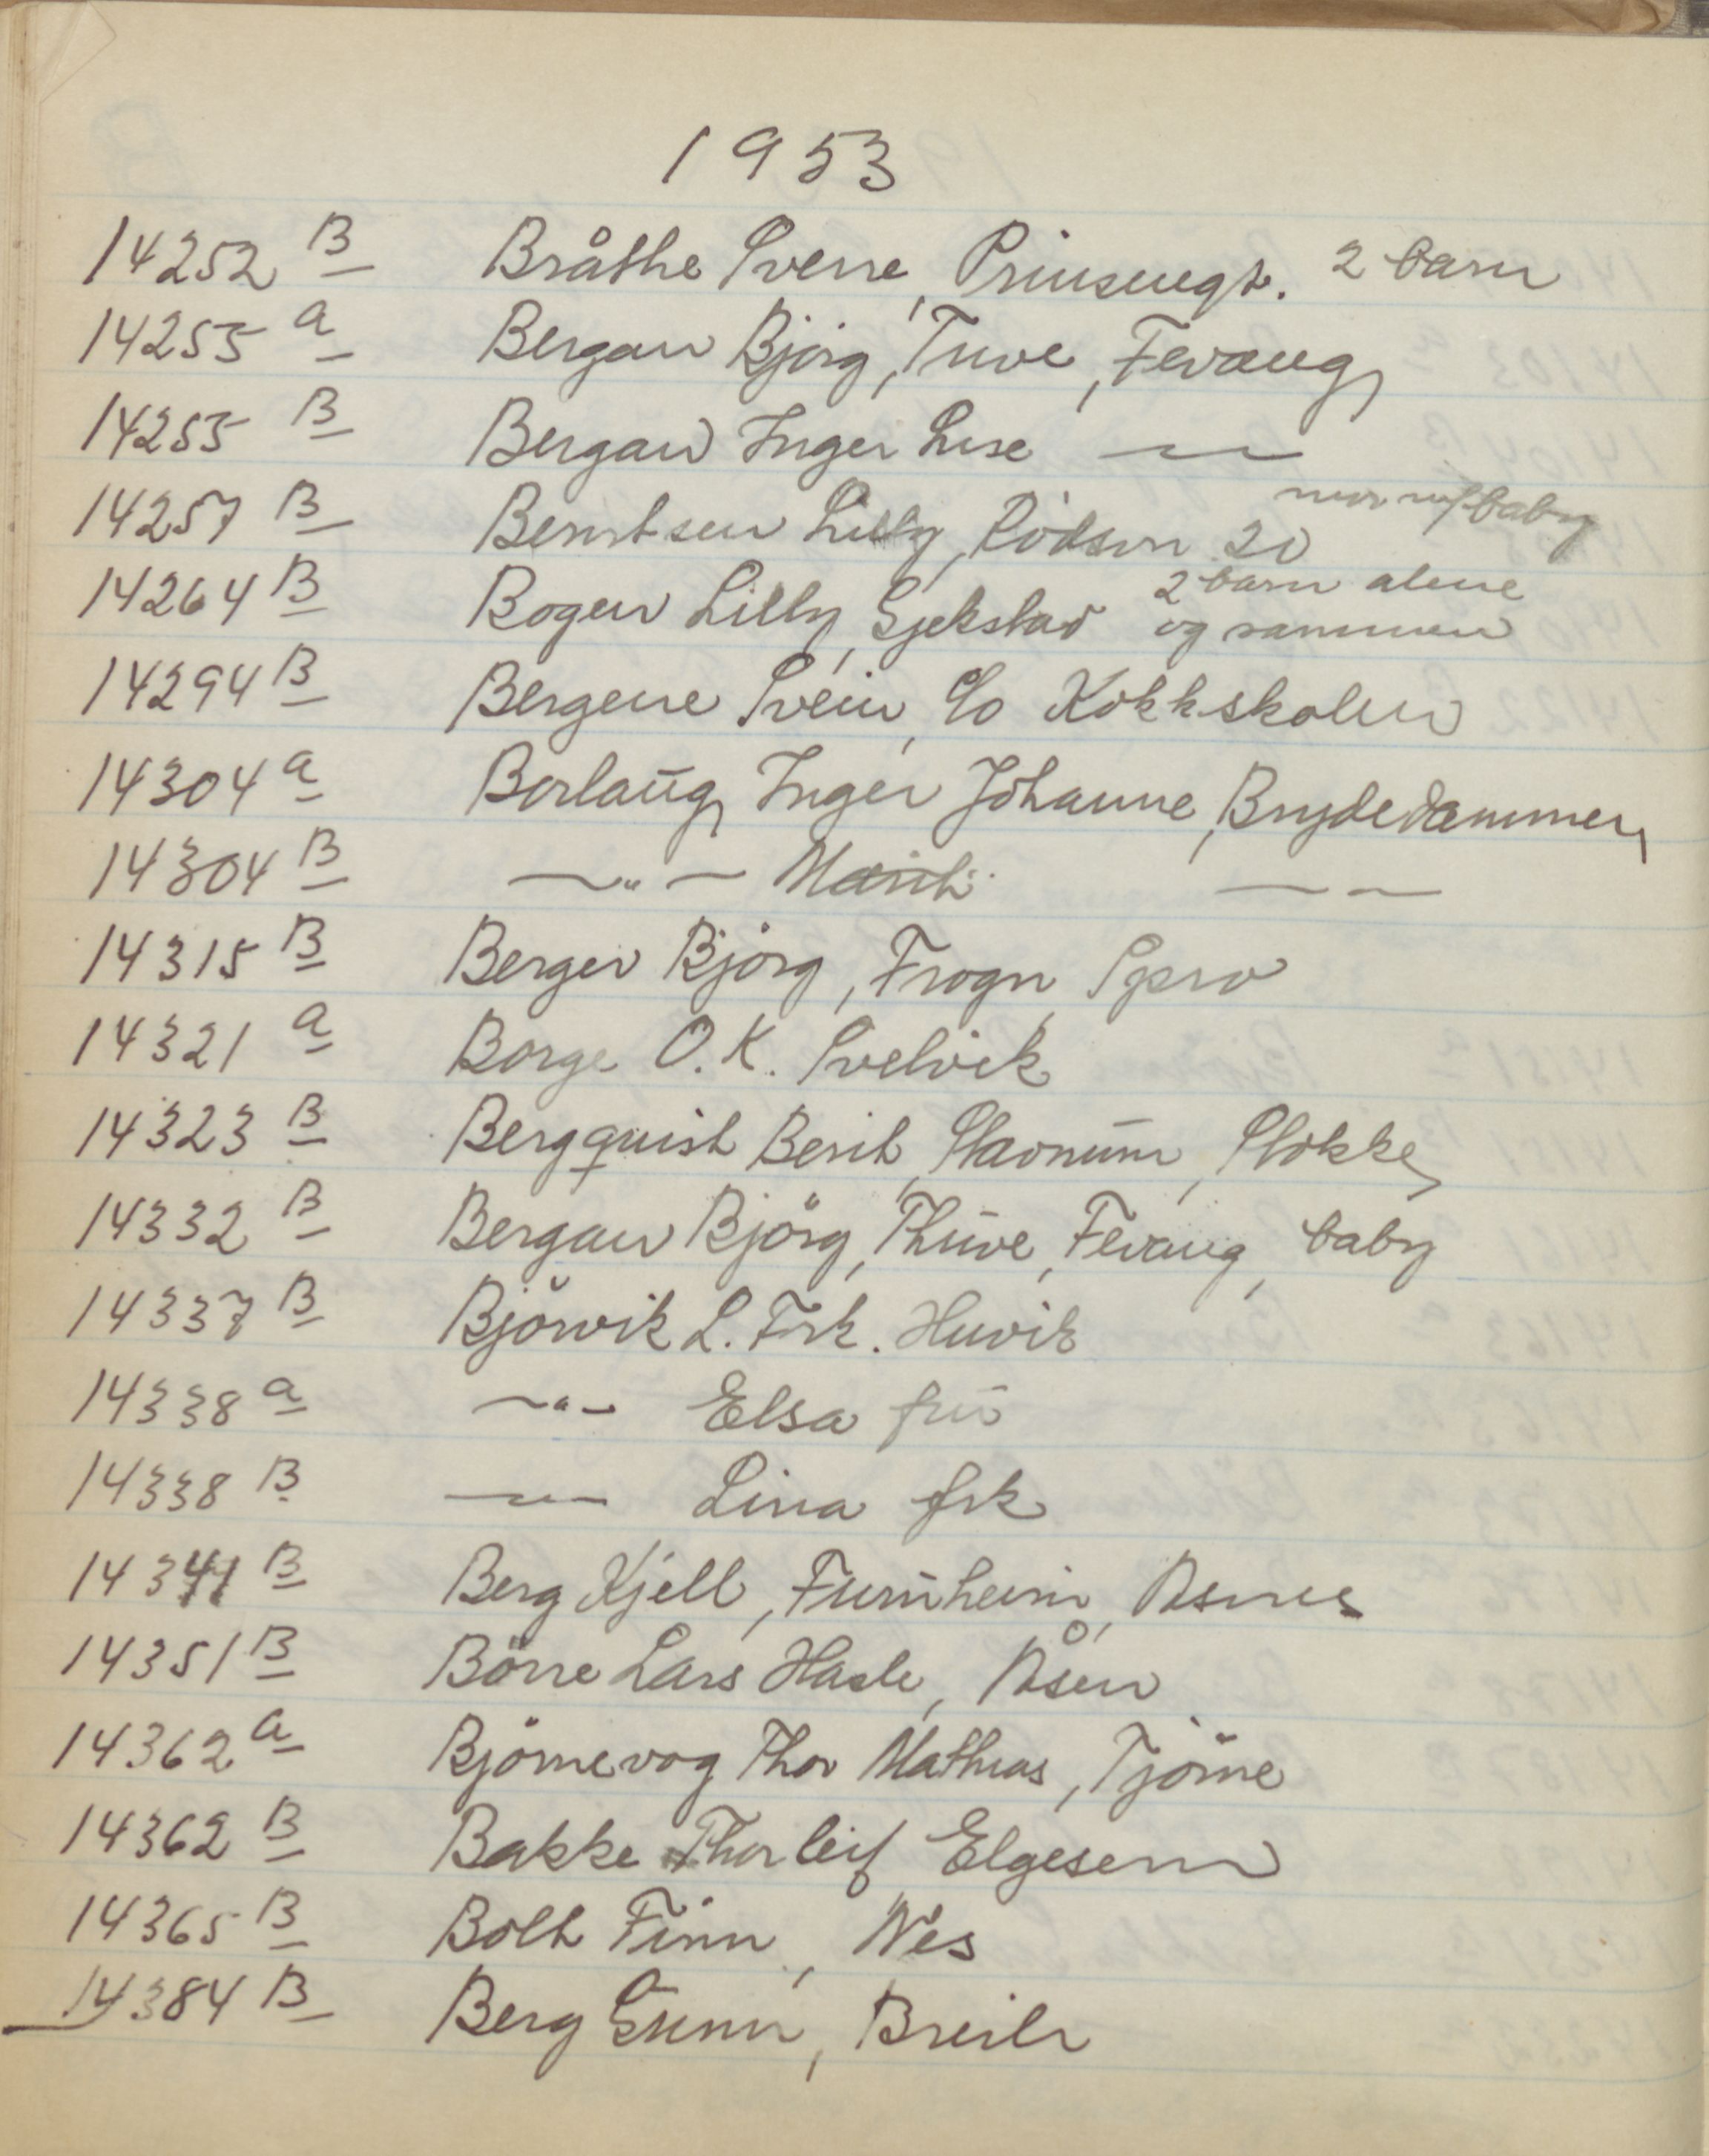 1953
14252 B Bråthe Sverre, Prinsensgt. 2 barn
14255 a Bergan Bjørg, Tuve, Fevang
14255 B Bergan Inger Lise — " —
14257 B Berntsen Lilly, Rødsvn 20 mor m/baby
14264 B Bogen Lilly, Gjekstad 2 barn alene
og sammen
14294 B Bergene Svein, c/o Kokkskolen
14304 a Borlaug Inger Johanne, Brydedammen
14304 B — " — Marit — " —
14315 B Berger Bjørg, Frogn
14321 a Borge O.K. Svelvik
14323 B Bergquist Berit, Stavnum, Stokke
14332 B Bergan Bjørg, Thuve, Fevang, baby
14337 B Bjørvik L. Frk. Huvik
14338 a — " — Elsa fru
14338 B — " — Lina frk
14341 B Berg Kjell, Furuheim, Asnes
14351 B Börre Lars Hasle, Åsen
14362 a Björnevog Thor Mathias, Tjöme
14362 B Bakke Thorleif Elgesem
14365 B Bolt Finn, Nes
14384 B Berg Gunn, Breili